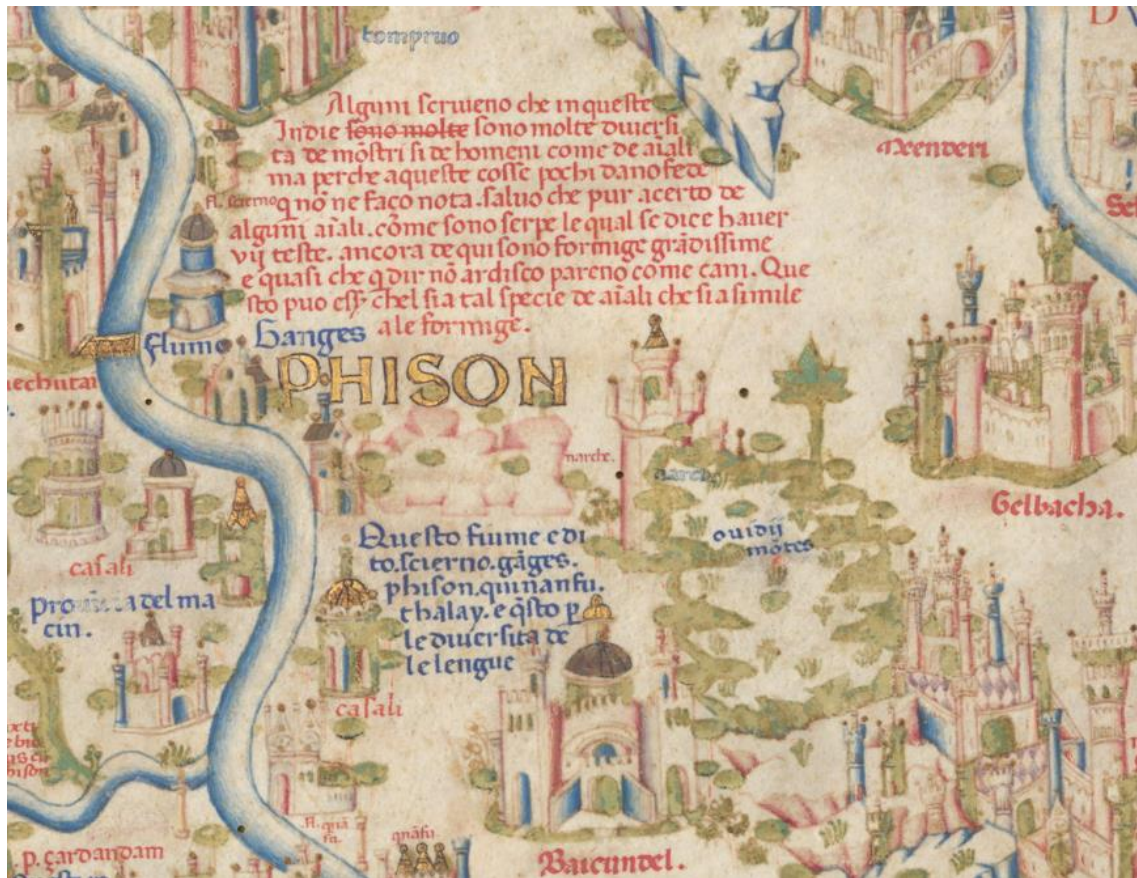 tompruo
Alguni scriueno che in queste
Indie sono molte sono molte diuersi
ta de mōstri si de homeni come de aīali
ma perche aqueste cosse pochi dano fede
fl. scierno
q nō ne faço nota. saluo che pur acerto de
alguni aīali. cōme sono serpe le qual se dice hauer
vij teste. ancora de qui sono formige grādissime
e quasi che q dir nō ardisco pareno come cani. Que
sto puo esser chel sia tal specie de aīali che sia simile
a le formige.
flumo Ganges
PHISON
axenderi
narche.
Gelbacha.
ouidij
mōtes
Questo fiume e di
to. scierno. gāges.
phison. quinanfu.
thalay. e q̄sto p
le diuersita de
le lengue
casali
prouincia del ma
cin.
casali
p. çardandam
fl. quiā
fu.
quāfu
Baicundel.